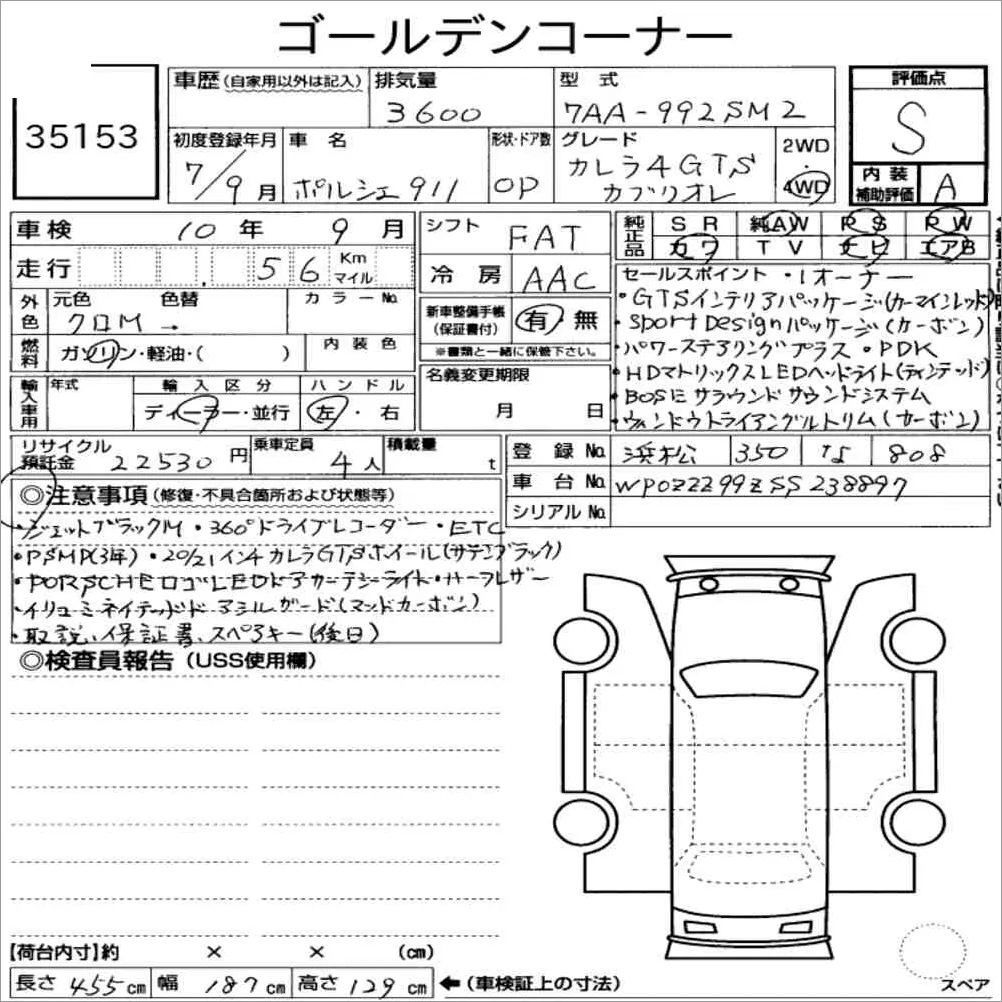 ゴールデンコーナー
35153
車歴(自家用以外は記入)
排気量
3600
型式
7AA-992SM2
評価点
S
初度登録年月
7/9月
車名
ポルシェ911
形状・ドア数
OP
グレード
カレラ4GTS
カブリオレ
2WD
・
4WD
内装
補助評価
A
車検 10年 9月
走行 56 Km
マイル
シフト
FAT
冷房
AAC
純正品
SR 純AW PS PW
カワ TV ナビ エアB
外色
元色 色替
クロM →
カラーNo.
燃料
ガソリン・軽油・( )
内装色
新車整備手帳
(保証書付)
有 無
※書類と一緒に保管下さい。
輸入車用
年式
輸入区分
ディーラー・並行
ハンドル
左・右
名義変更期限
月 日
セールスポイント ・1オーナー
・GTSインテリアパッケージ(カーマインレッド)
・Sport Designパッケージ(カーボン)
・パワーステアリングプラス・PDK
・HDマトリックスLEDヘッドライト(ティンテッド)
・BOSEサラウンドサウンドシステム
・ウィンドウトライアングルトリム(カーボン)
リサイクル
預託金
22530円
乗車定員
4人
積載量
t
登録No. 浜松 350 な 808
車台No. WP0ZZZ99ZSS238897
シリアルNo.
◎注意事項(修復・不具合箇所および状態等)
・ジェットブラックM・360°ドライブレコーダー・ETC
・PSMP(3年)・20/21インチカレラGTSホイール(サテンブラック)
・PORSCHEロゴLEDドアカーテシーライト・ハーフレザー
・イリュミネイテッドドアシルガード(マッドカーボン)
・取説、保証書、スペアキー(後日)
◎検査員報告(USS使用欄)
【荷台内寸】約 × × (cm)
長さ455cm 幅187cm 高さ129cm ←(車検証上の寸法)
スペア